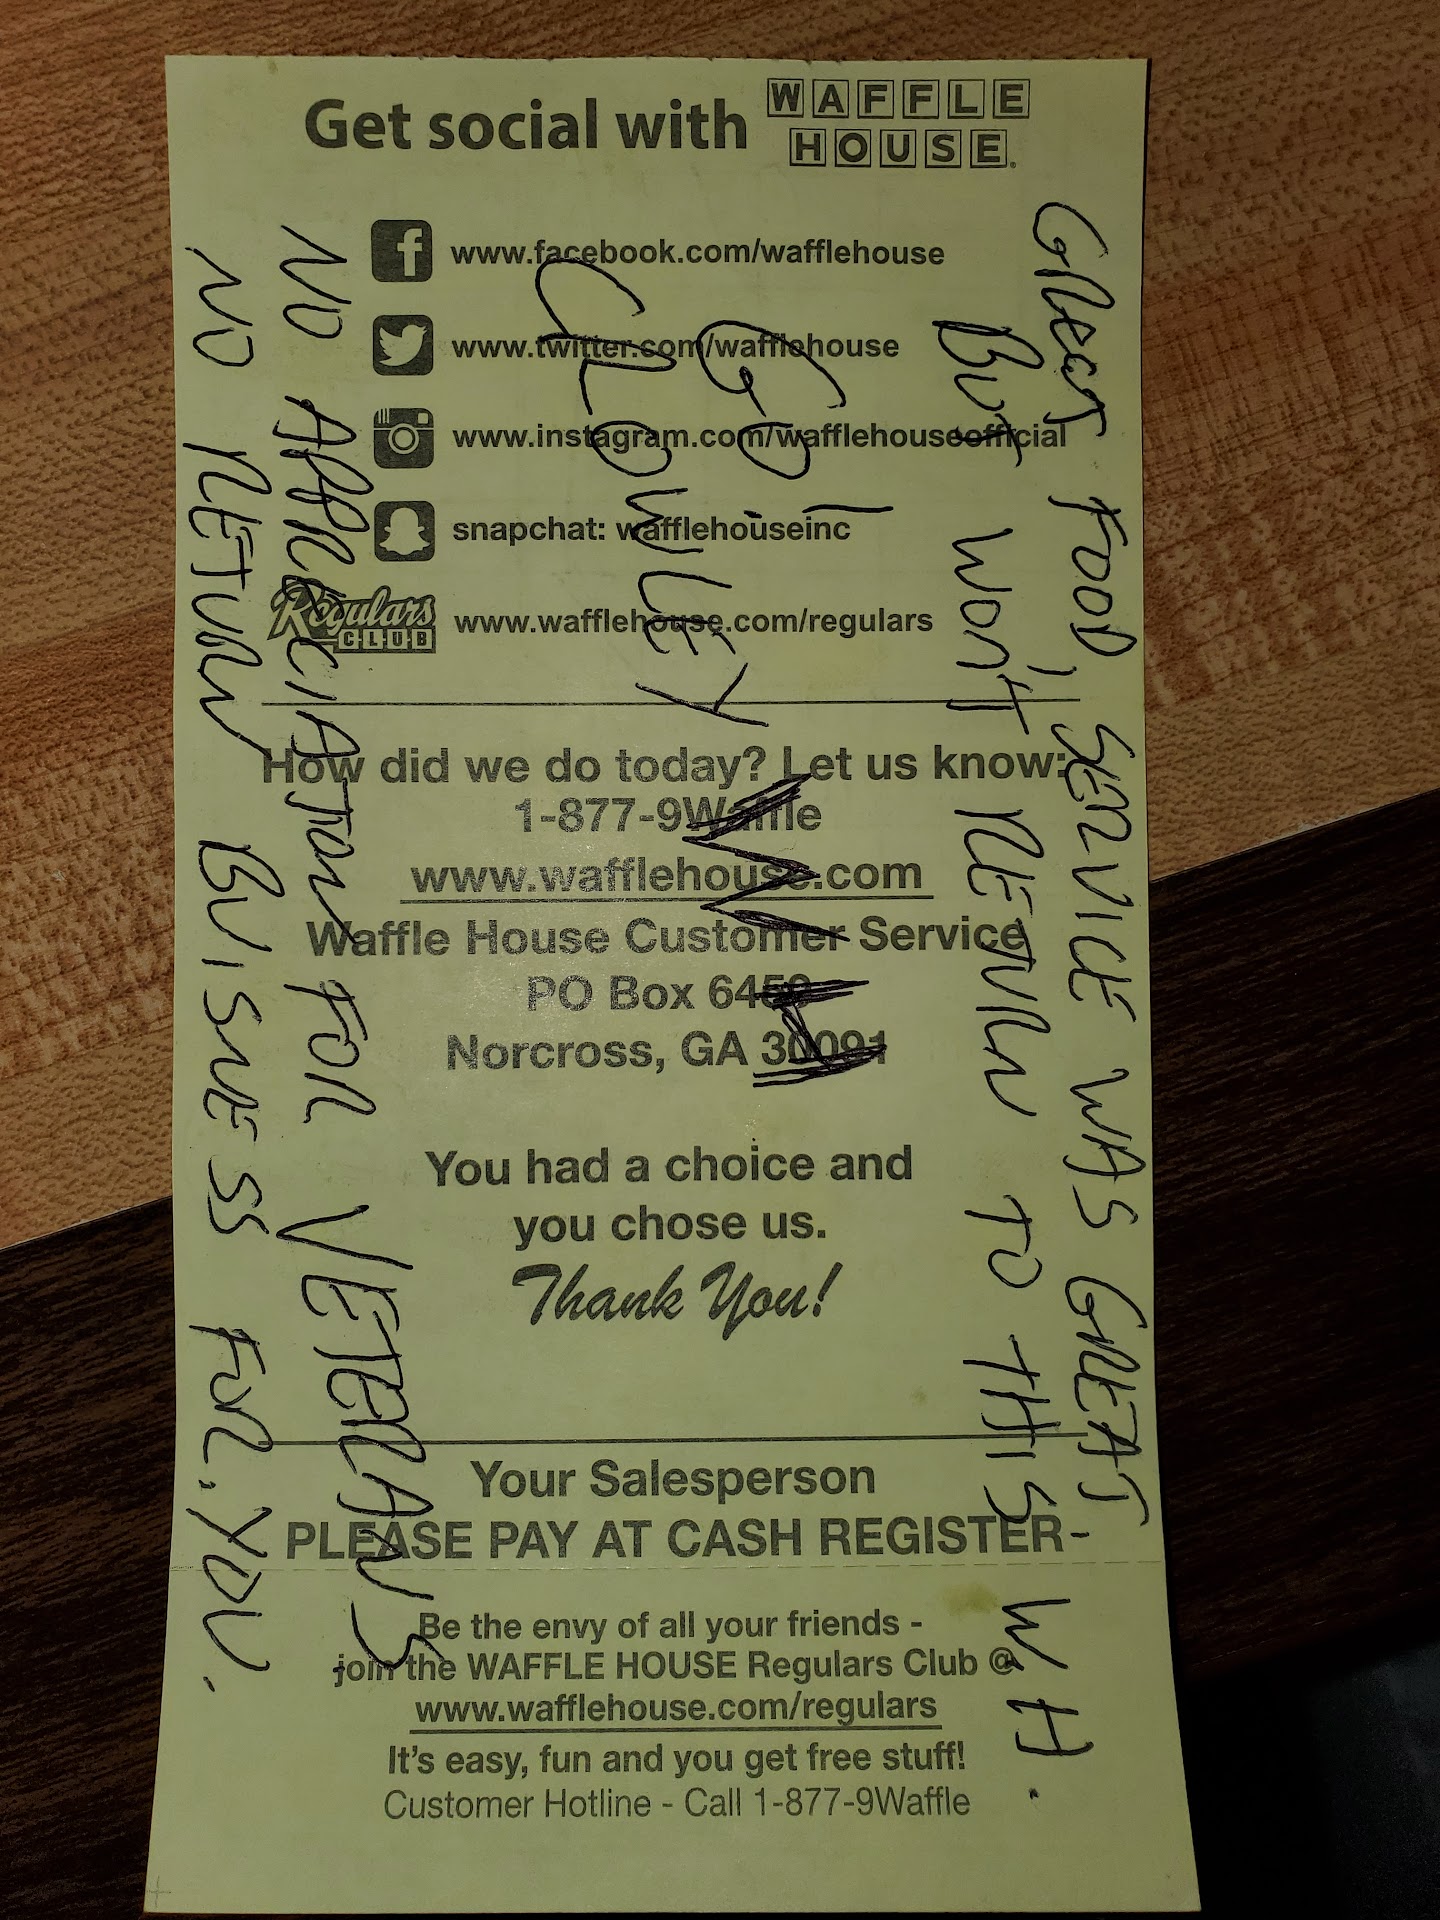 Get social with WAFFLE HOUSE
www.facebook.com/wafflehouse
www.twitter.com/wafflehouse
www.instagram.com/wafflehouseofficial
snapchat: wafflehouseinc
Regulars CLUB www.wafflehouse.com/regulars
How did we do today? Let us know:
1-877-9Waffle
www.wafflehouse.com
Waffle House Customer Service
PO Box 6450
Norcross, GA 30091
You had a choice and
you chose us.
Thank You!
Your Salesperson
PLEASE PAY AT CASH REGISTER
Be the envy of all your friends -
join the WAFFLE HOUSE Regulars Club @
www.wafflehouse.com/regulars
It's easy, fun and you get free stuff!
Customer Hotline - Call 1-877-9Waffle
GREAT FOOD, SERVICE WAS GREAT.
BUT WON'T RETURN TO THIS W.H.
GO
CROWLEY
NO APPRICIATON FOR VETERANS
NO RETURN BUISNESS FOR.YOU.